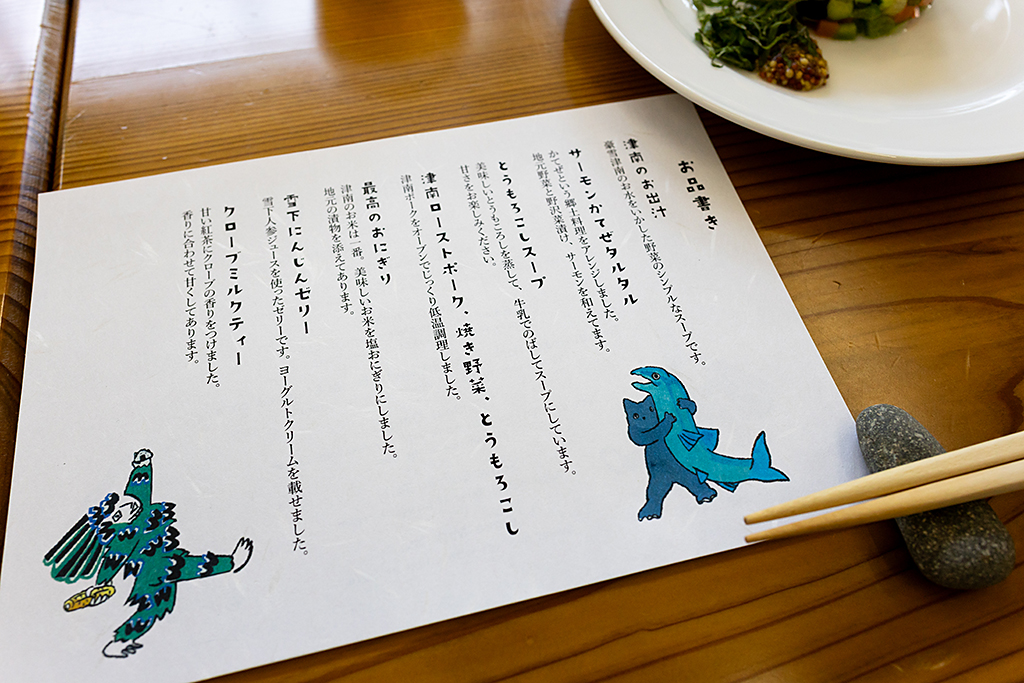 お品書き
津南のお出汁
豪雪津南のお水をいかした野菜のシンプルなスープです。
サーモンかてぜタルタル
かてぜという郷土料理をアレンジしました。
地元野菜と野沢菜漬け、サーモンを和えてます。
とうもろこしスープ
美味しいとうもころしを蒸して、牛乳でのばしてスープにしています。
甘さをお楽しみください。
津南ローストポーク、焼き野菜、とうもろこし
津南ポークをオーブンでじっくり低温調理しました。
最高のおにぎり
津南のお米は一番。美味しいお米を塩おにぎりにしました。
地元の漬物を添えてあります。
雪下にんじんゼリー
雪下人参ジュースを使ったゼリーです。ヨーグルトクリームを載せました。
クローブミルクティー
甘い紅茶にクローブの香りをつけました。
香りに合わせて甘くしてあります。